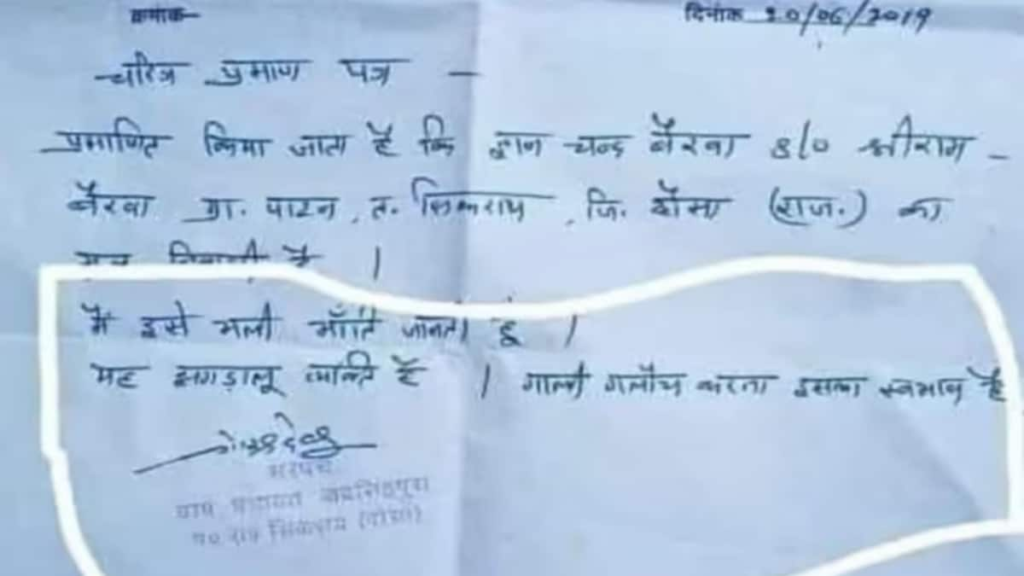 क्रमांक दिनांक 20/06/2019
चरित्र प्रमाण पत्र
प्रमाणित किया जाता है कि ज्ञान चन्द बैरवा S/o श्रीराम
बैरवा ग्रा. पाटन, त. सिकराय, जि. दौसा (राज.) का
मूल निवासी है ।
मैं इसे भली भाँति जानता हूं ।
यह झगड़ालू व्यक्ति है । गाली गलौच करना इसका स्वभाव है
सरपंच
ग्राम पंचायत